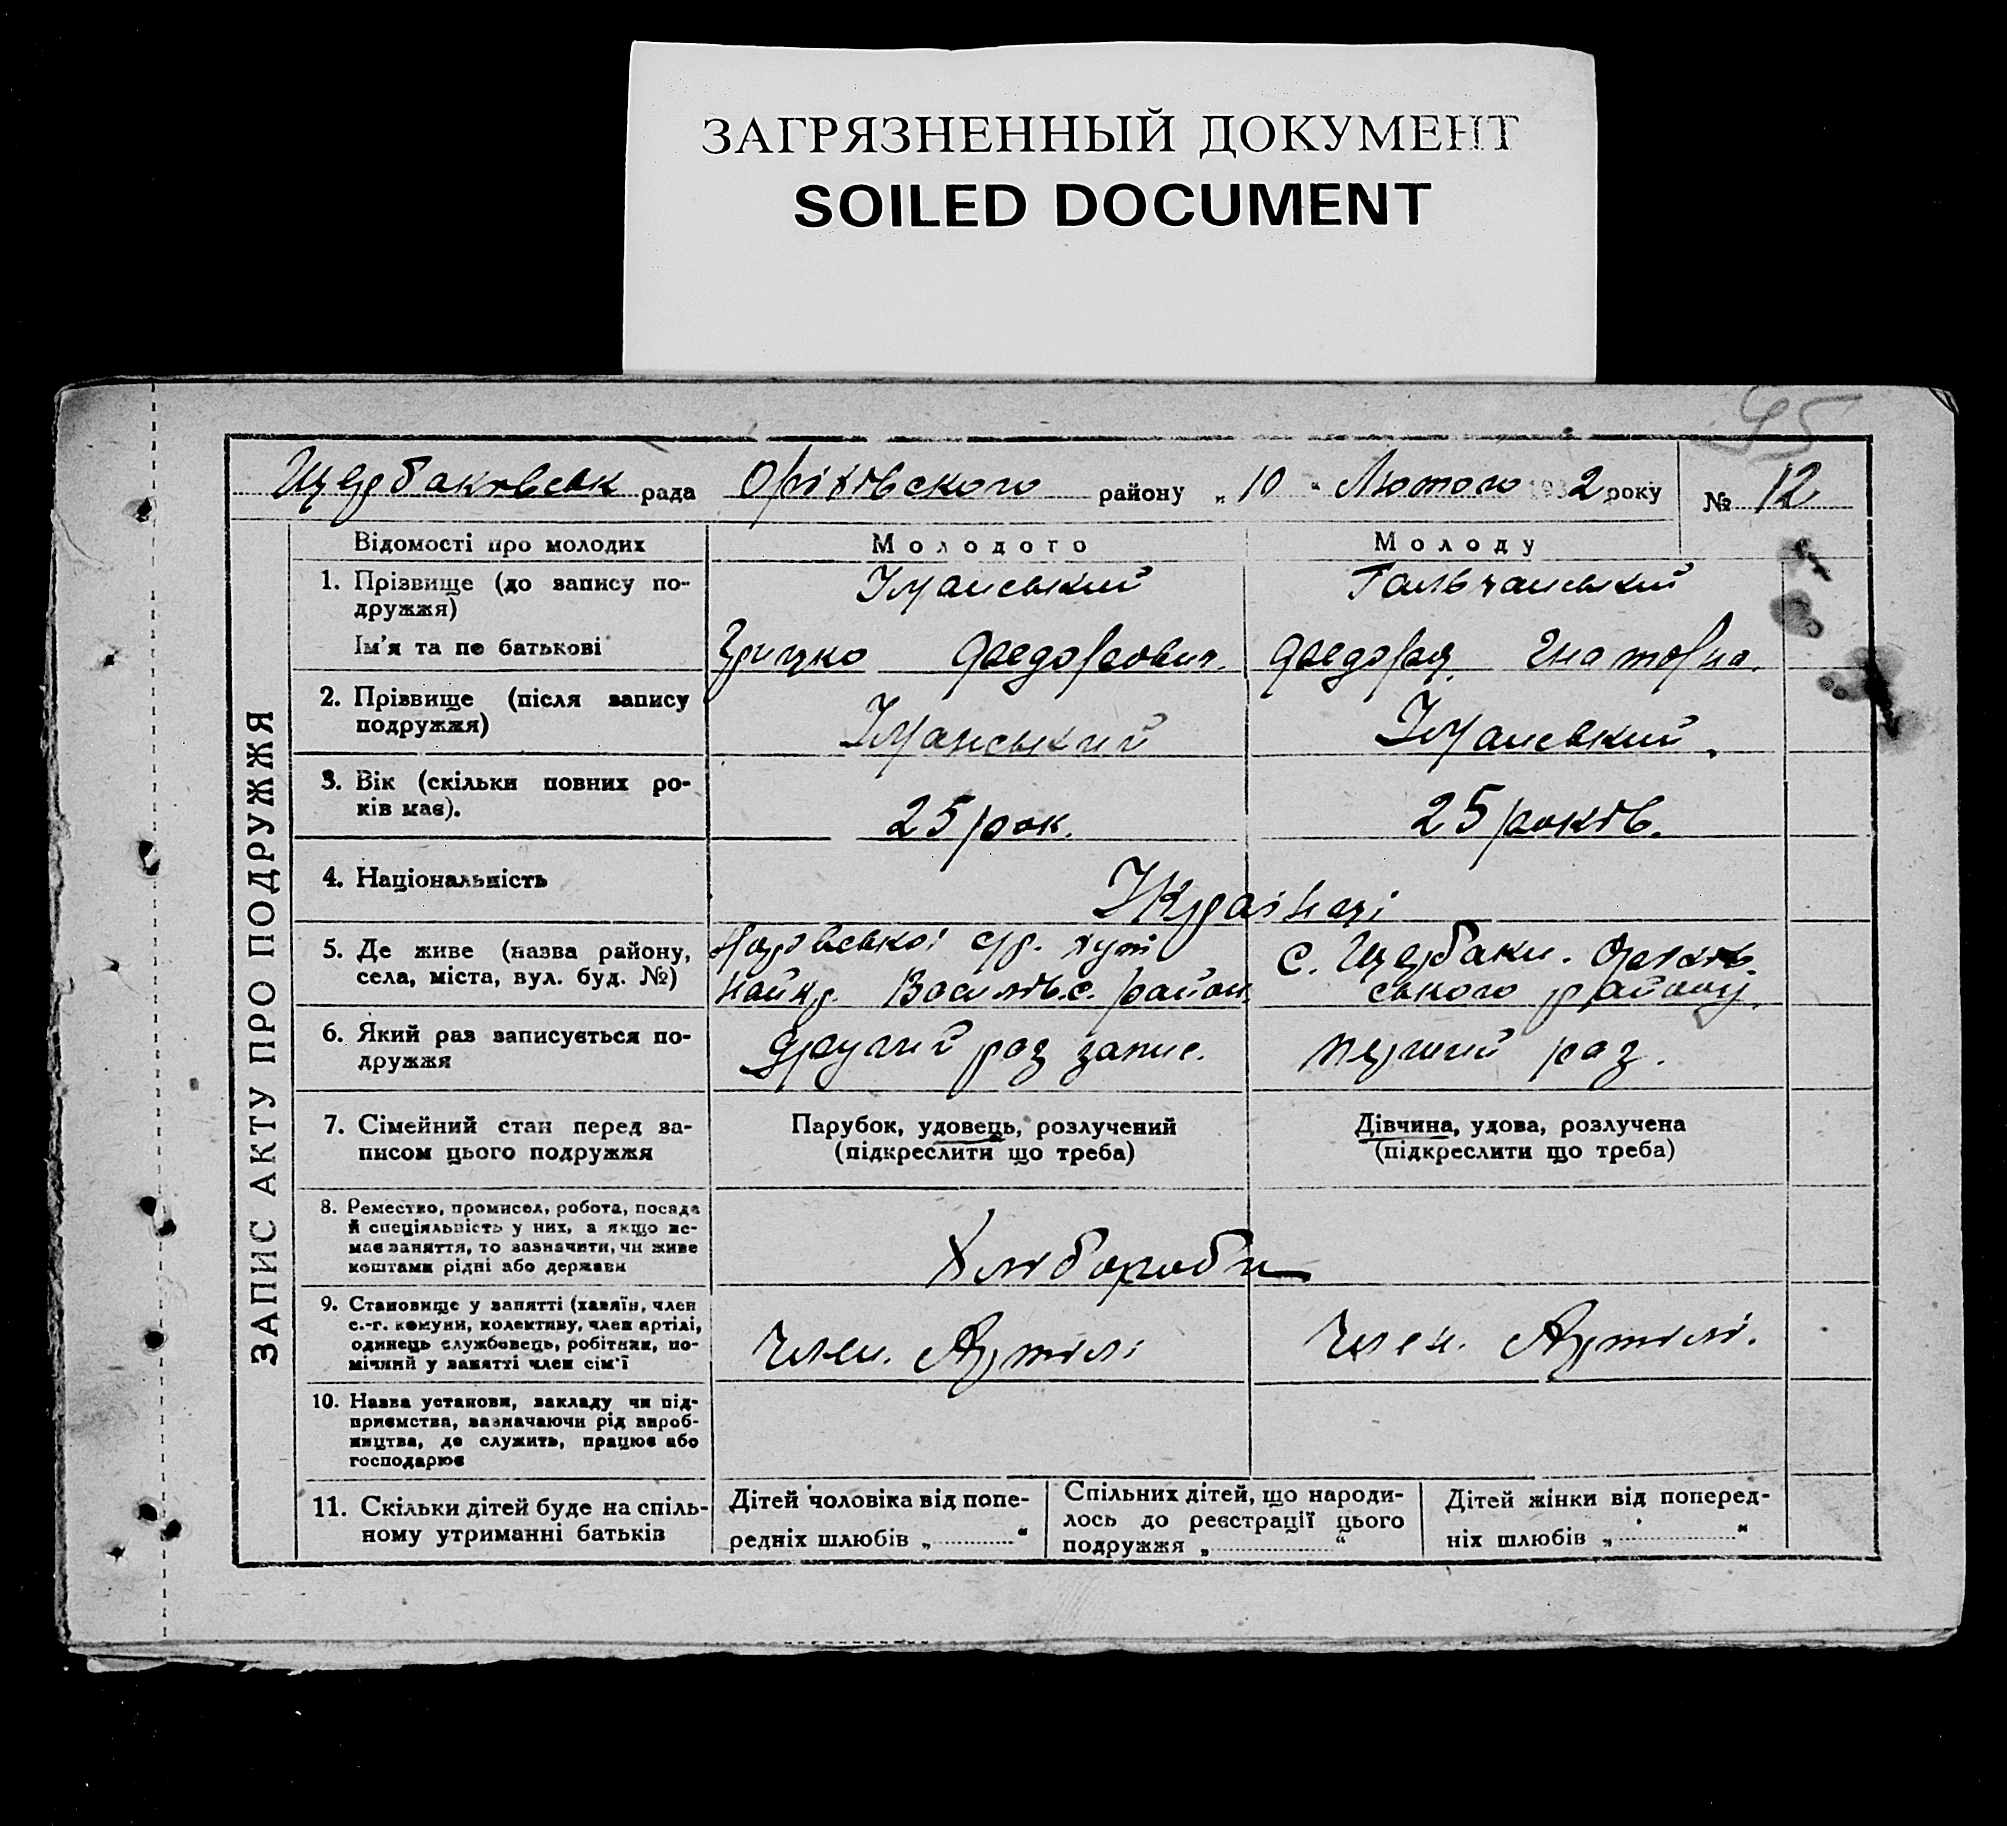 ЗАГРЯЗНЕННЫЙ ДОКУМЕНТ
SOILED DOCUMENT
45
Щербаківськ рада Оріхівского району „10“ Лютого 1932 року № 12
ЗАПИС АКТУ ПРО ПОДРУЖЖЯ
Відомості про молодих Молодого Молоду
1. Прізвище (до запису по- Уманський Гальчанський
дружжя)
Ім'я та по батькові Грицко Федорович. Федора Гнатовна.
2. Прізвище (після запису Уманський Уманський.
подружжя)
3. Вік (скільки повних ро- 25 рок. 25 років.
ків має).
4. Національність Українці
5. Де живе (назва району, с. Щербаки. Оріхів-
села, міста, вул. буд. №) Василівс. район. ського району.
6. Який раз записується по- Другий раз запис. перший раз.
дружжя
7. Сімейний стан перед за- Парубок, удовець, розлучений Дівчина, удова, розлучена
писом цього подружжя (підкреслити що треба) (підкреслити що треба)
8. Ремество, промисел, робота, посада
й спеціяльність у них, а якщо не-
має заняття, то зазначити, чи живе Хлібороби
коштами рідні або держави
9. Становище у занятті (хазяїн, член
с.-г. комуни, колективу, член артілі, Член. Артілі Член. Артілі.
одинець службовець, робітник, по-
мічний у занятті член сім'ї
10. Назва установи, закладу чи під-
приємства, зазначаючи рід вироб-
ництва, де служить, працює або
господарює
11. Скільки дітей буде на спіль- Дітей чоловіка від попе- Спільних дітей, що народи- Дітей жінки від поперед-
ному утриманні батьків редніх шлюбів „..............“ лось до реєстрації цього ніх шлюбів „..............“
подружжя „..............“